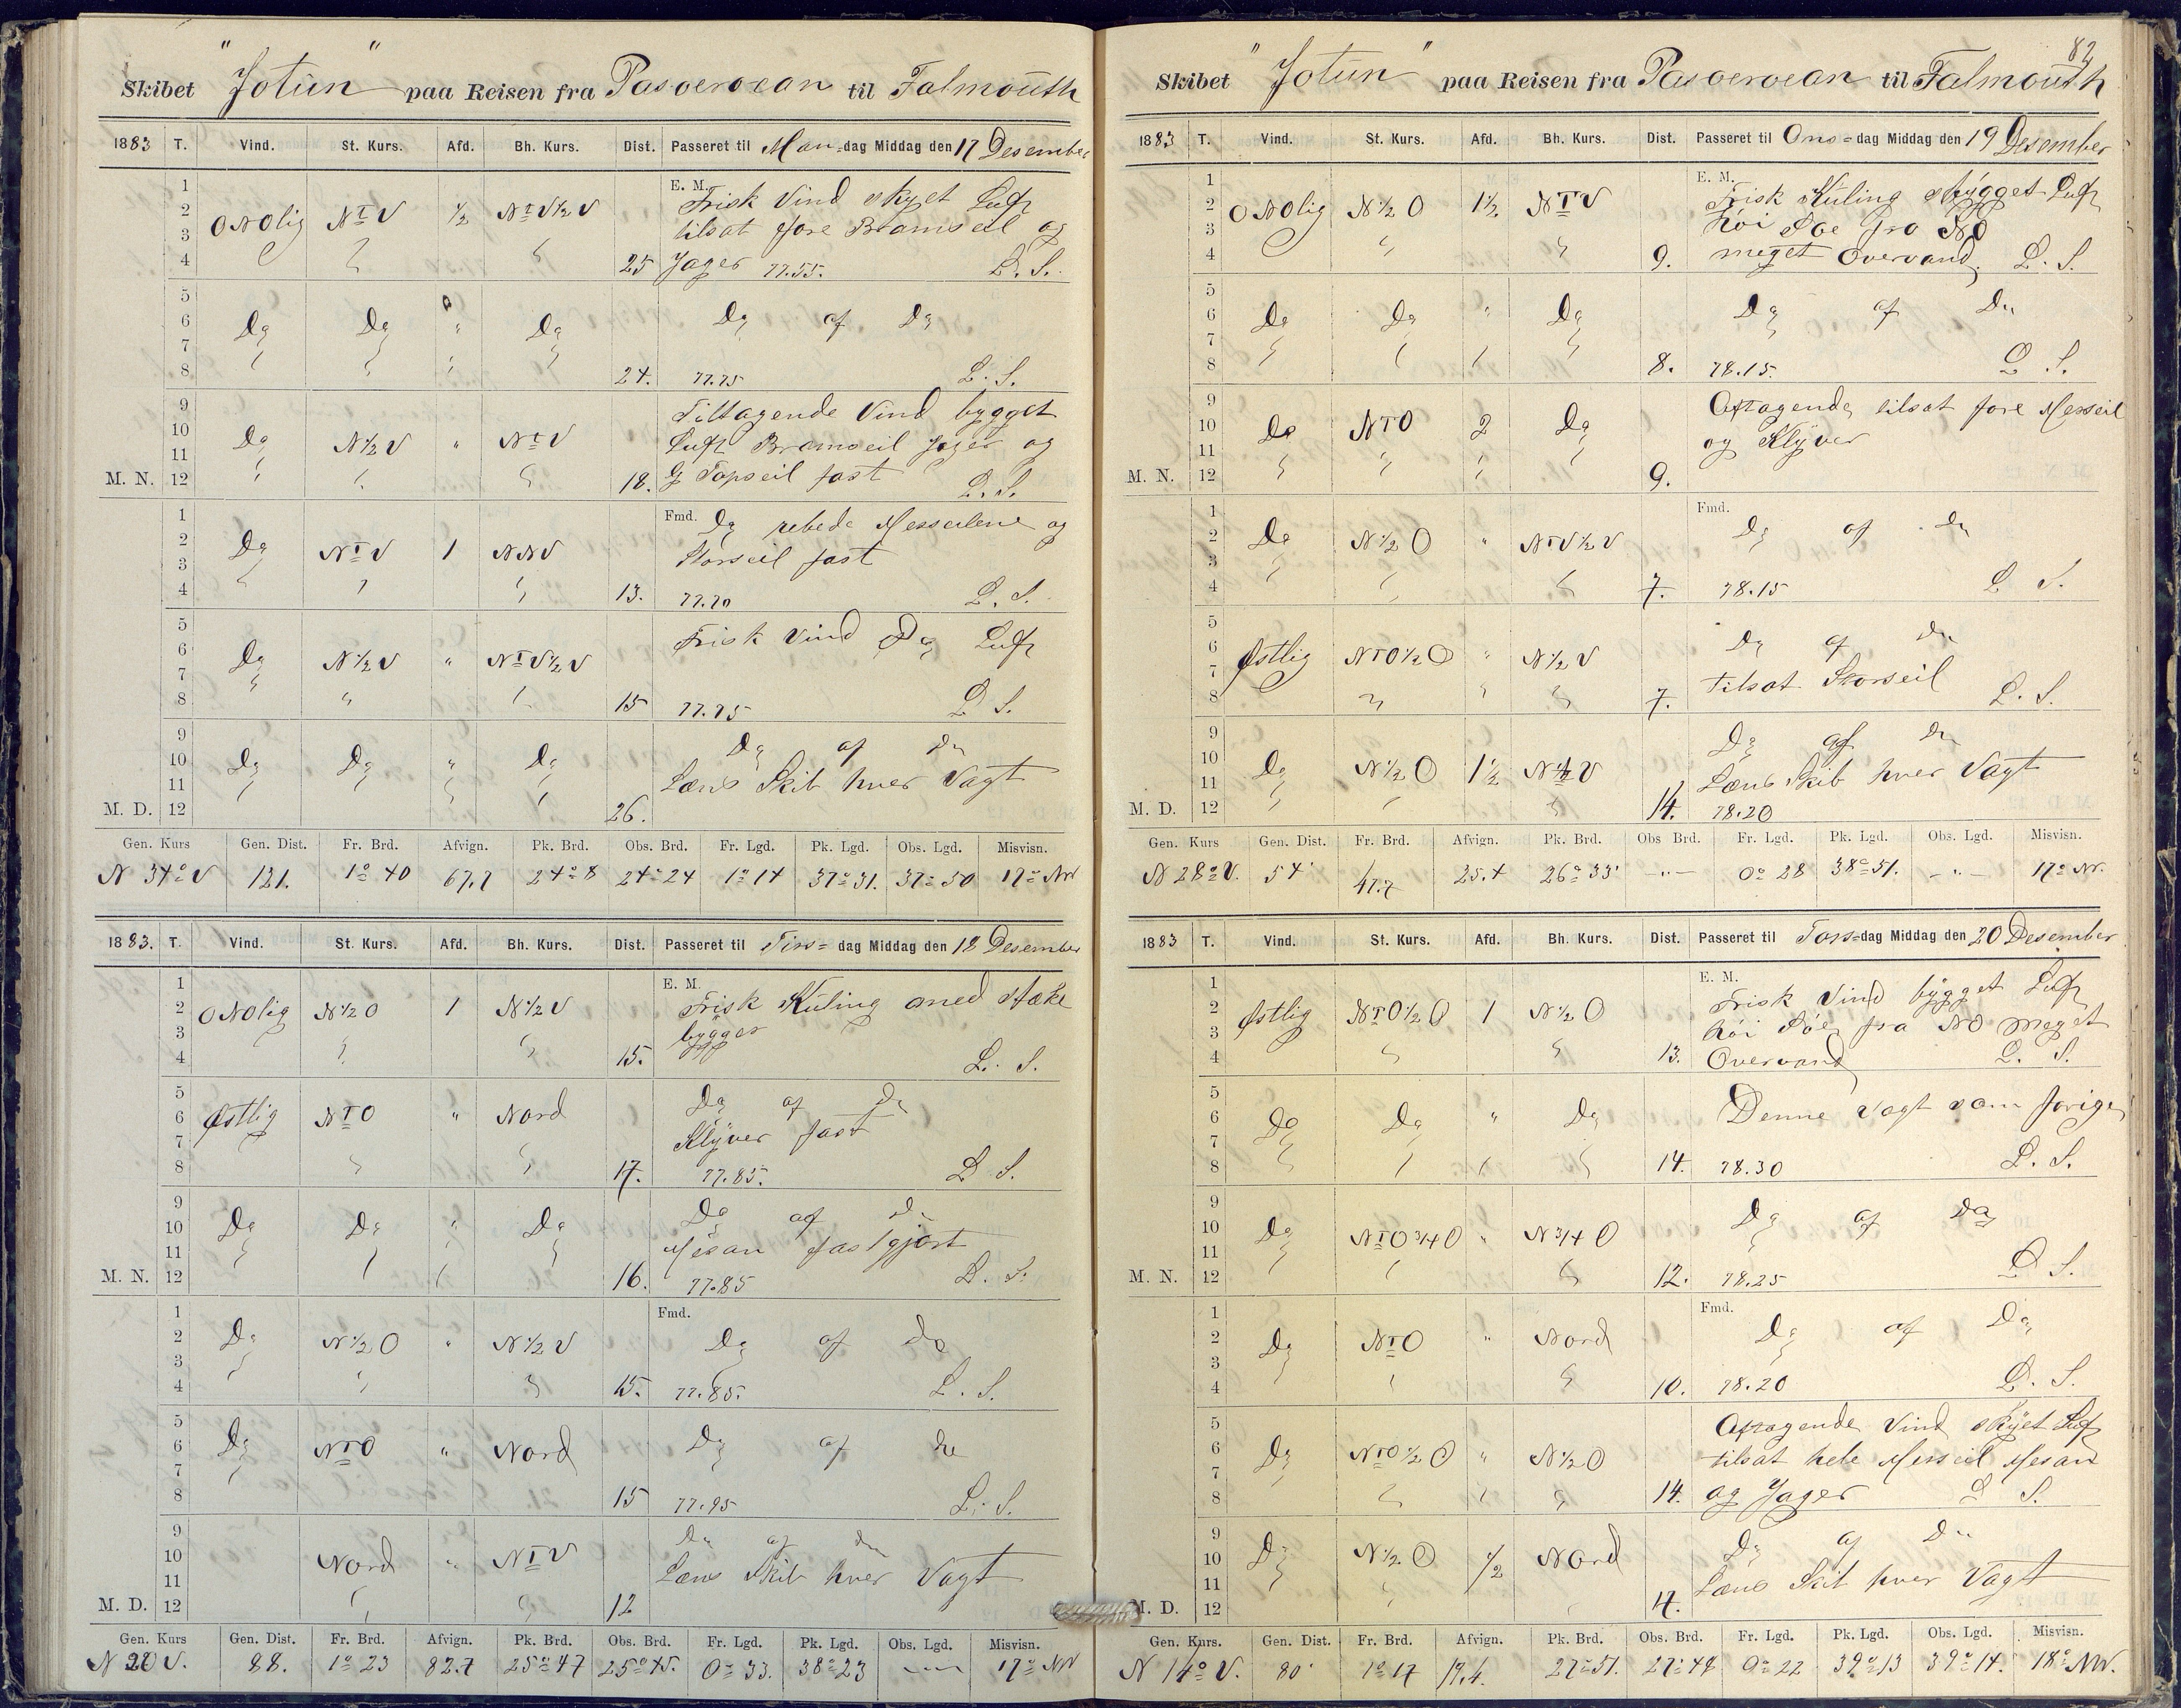 Skibet "Jotun" paa Reisen fra Pasoeroean til Falmouth
1883 T. Vind. St. Kurs. Afd. Bh. Kurs. Dist. Passeret til Man=dag Middag den 17 Desember
E. M.
1 2 3 4 ONOlig NTV 1/2 NTV1/2V 25
Frisk Vind skyet Luft
tilsat fore Bramseil og
Jager 77.55. L. S.
5 6 7 8 Do Do " Do 24.
Do af Do
77.75 L. S.
9 10 11 M. N. 12 Do N1/2V " NTV 18.
Tiltagende Vind bygget
Luft Bramseil Jager og
G Topseil fast L. S.
Fmd.
1 2 3 4 Do NTV 1 NNV 13.
Do rebede Messeilene og
Storseil fast
77.70 L. S.
5 6 7 8 Do N1/2V " NTV1/2V 15
Frisk Vind Do Luft
77.75 L. S.
9 10 11 M. D. 12 Do Do " Do 26.
Do af Do
Læns Skib hver Vagt
Gen. Kurs Gen. Dist. Fr. Brd. Afvign. Pk. Brd. Obs. Brd. Fr. Lgd. Pk. Lgd. Obs. Lgd. Misvisn.
N 34° V 121. 1° 40 67,7 24° 8 24° 24 1° 14 37° 31. 37° 50 17° NW
1883. T. Vind. St. Kurs. Afd. Bh. Kurs. Dist. Passeret til Tirs=dag Middag den 18 Desember
E. M.
1 2 3 4 ONOlig N1/2O 1 N1/2V 15.
Frisk Kuling med stærke
bygger
L. S.
5 6 7 8 Østlig NTO " Nord 17.
Do af Do
Klyver fast
77.85. L. S.
9 10 11 M. N. 12 Do Do " Do 16.
Do af Do
Mesan fastgjort
77.85 L. S.
Fmd.
1 2 3 4 Do N1/2O " N1/2V 15.
Do af Do
77.85. L. S.
5 6 7 8 Do NTO " Nord 15
Do af Do
77.95 L. S.
9 10 11 M. D. 12 Nord " NTV 12
Do af Do
Læns Skib hver Vagt
Gen. Kurs Gen. Dist. Fr. Brd. Afvign. Pk. Brd. Obs. Brd. Fr. Lgd. Pk. Lgd. Obs. Lgd. Misvisn.
N 20 V. 88. 1° 23 82.7 25° 47 25° 45. 0° 33. 38° 23 —"— 17° NW
82
Skibet "Jotun" paa Reisen fra Pasoeroean til Falmouth
1883 T. Vind. St. Kurs. Afd. Bh. Kurs. Dist. Passeret til Ons=dag Middag den 19 Desember
E. M.
1 2 3 4 ONOlig N1/2O 1 1/2 NTV 9.
Frisk Kuling skygget Luft
høi Søe fra NO
meget Overvand. L. S.
5 6 7 8 Do Do " Do 8.
Do af Do
78.15. L. S.
9 10 11 M. N. 12 Do NTO 2 Do 9.
Aftagende tilsat fore Messeil
og Klyver
Fmd.
1 2 3 4 Do N1/2O " NTV1/2V 7.
Do af Do
78.15 L. S.
5 6 7 8 Østlig NTO1/2O " N1/2V 7.
Do af Do
Tilsat Storseil L. S.
9 10 11 M. D. 12 Do N1/2O 1 1/2 N1/2V 14.
Do af Do
Læns Skib hver Vagt
78.20
Gen. Kurs Gen. Dist. Fr. Brd. Afvign. Pk. Brd. Obs Brd. Fr. Lgd. Pk. Lgd. Obs. Lgd. Misvisn.
N 28° V. 54' 47.7 25.4 26° 33' —"— 0° 28 38° 51. —"— 17° NV.
1883 T. Vind. St. Kurs. Afd. Bh. Kurs. Dist. Passeret til Tors=dag Middag den 20 Desember
E. M.
1 2 3 4 Østlig NTO1/2O 1 N1/2O 13.
Frisk Vind bygget Luft
høi Søe fra NO meget
Overvand L. S.
5 6 7 8 Do Do " Do 14.
Denne Vagt som forige
78.30 L. S.
9 10 11 M. N. 12 Do NTO3/4O " N3/4O 12.
Do af Do
78.25 L. S.
Fmd.
1 2 3 4 Do NTO " Nord 10.
Do af Do
78.20 L. S.
5 6 7 8 Do NTO1/2O " N1/2O 14.
Aftagende Vind skyet Luft
tilsat hele Messeil Mesan
og Jager L. S.
9 10 11 M. D. 12 Do N1/2O 1/2 Nord 17.
Do af Do
Læns Skib hver Vagt
Gen. Kurs. Gen. Dist. Fr. Brd. Afvign. Pk. Brd. Obs. Brd. Fr. Lgd. Pk. Lgd. Obs. Lgd. Misvisn.
N 14° V. 80' 1° 17 19.4. 27° 51. 27° 48 0° 22 39° 13 39° 14. 18° NW.